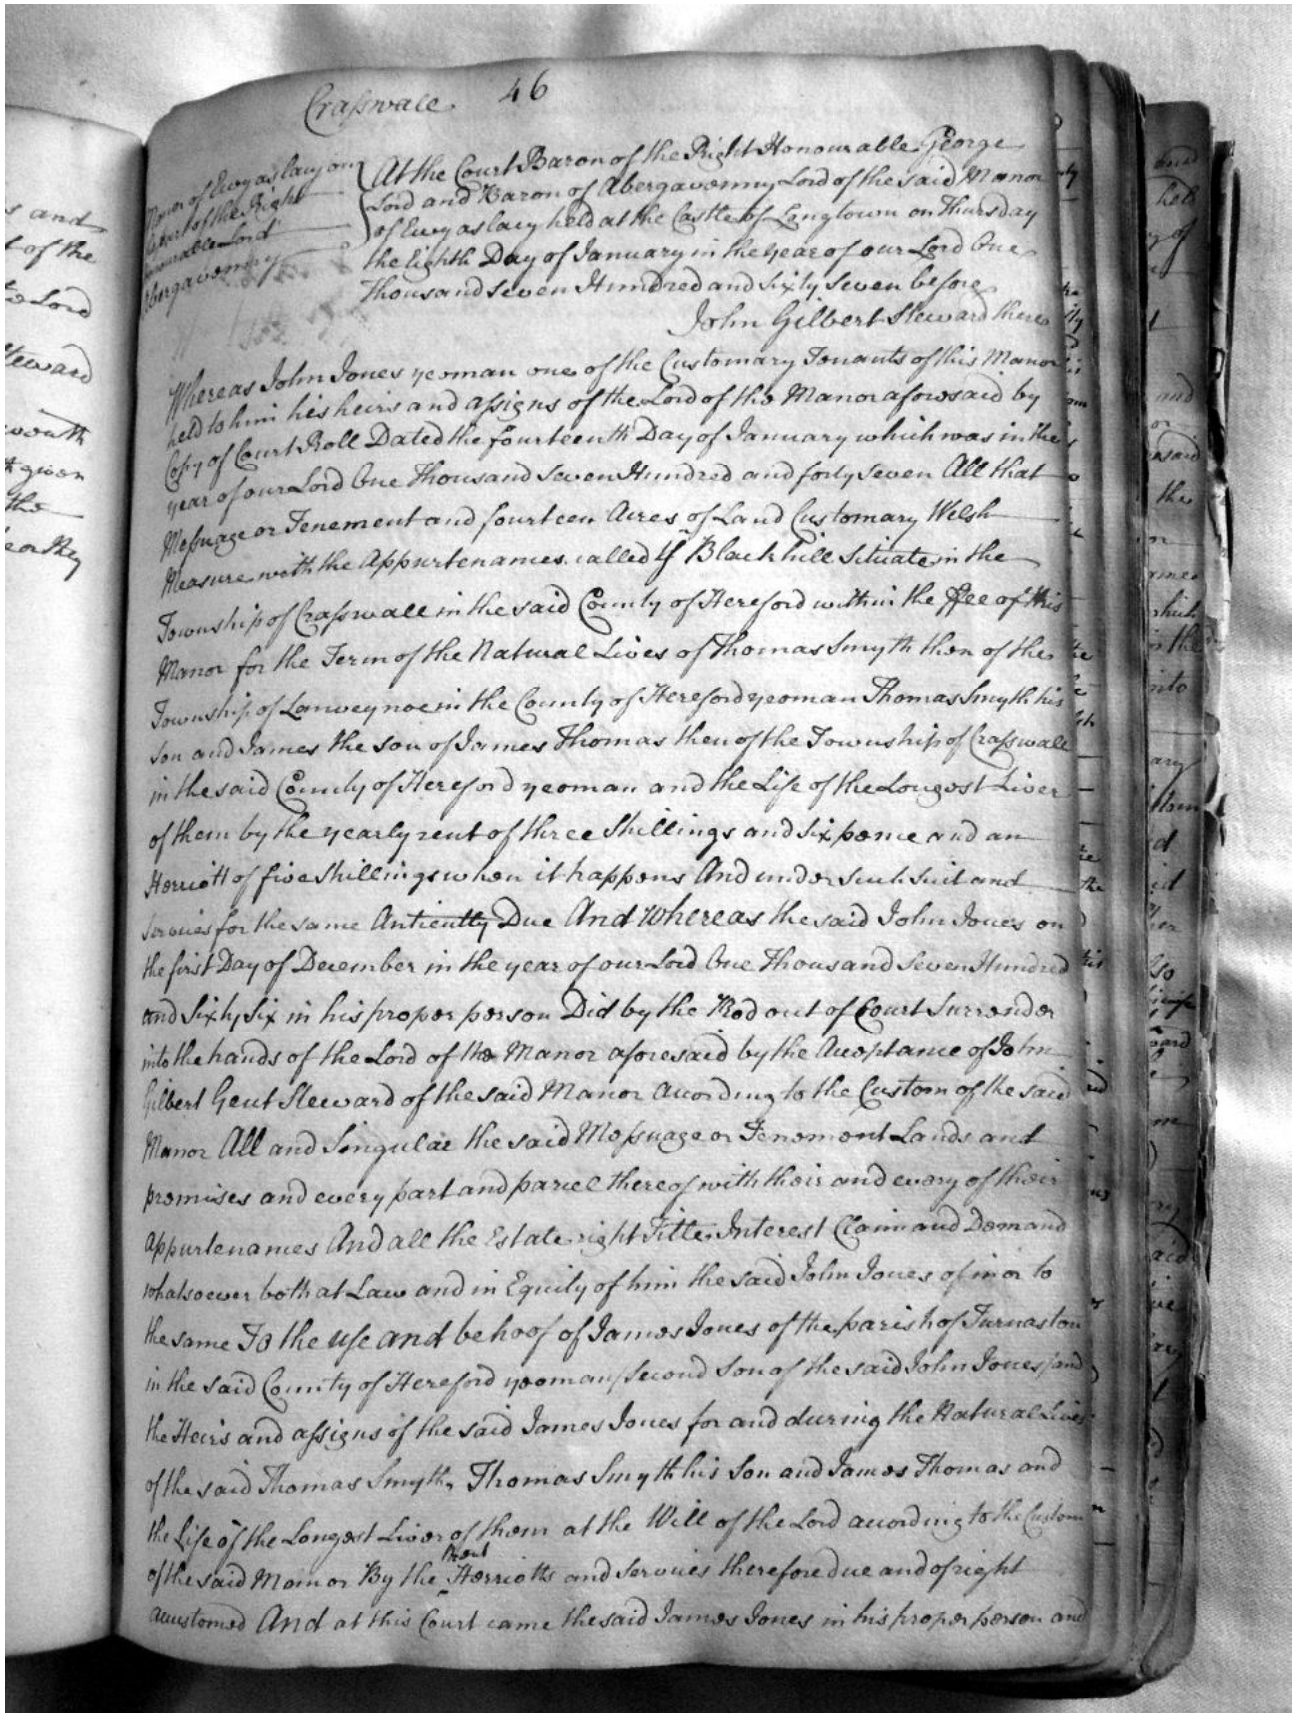 Crasswall
46
Manor of Ewyaslacy on
part of the Right
Honourable Lord
Abergavenny
At the Court Baron of the Right Honourable George
Lord and Baron of Abergavenny Lord of the said Manor
of Ewyaslacy held at the Castle of Longtown on Thursday
the Eighth Day of January in the year of our Lord One
Thousand seven Hundred and Sixty Seven before
John Gilbert Steward there
Whereas John Jones yeoman one of the Customary Tenants of this Manor
held to him his heirs and assigns of the Lord of the Manor aforesaid by
Copy of Court Roll Dated the fourteenth Day of January which was in the
year of our Lord One Thousand Seven Hundred and forty seven All that
Messuage or Tenement and fourteen Acres of Land Customary Welsh
Measure with the Appurtenances called Blackhill Situate in the
Township of Crasswall in the said County of Hereford within the ffee of this
Manor for the Term of the Natural Lives of Thomas Smyth then of the
Township of Lanveynoe in the County of Hereford yeoman Thomas Smyth his
son and James the son of James Thomas then of the Township of Crasswall
in the said County of Hereford yeoman and the Life of the Longest Liver
of them by the yearly rent of three Shillings and Six pence and an
Herriott of five shillings when it happens And under such suit and
services for the same Antiently Due And Whereas the said John Jones on
the first Day of December in the year of our Lord One Thousand Seven Hundred
and Sixty Six in his proper person Did by the Rod out of Court Surrender
into the hands of the Lord of the Manor aforesaid by the Acceptance of John
Gilbert Gent Steward of the said Manor according to the Custom of the said
Manor All and Singular the said Messuage or Tenement Lands and
premises and every part and parcel thereof with their and every of their
Appurtenances And all the Estate right Title Interest Claim and Demand
whatsoever both at Law and in Equity of him the said John Jones of in or to
the same To the use and behoof of James Jones of the parish of Turnaston
in the said County of Hereford yeoman (second Son of the said John Jones) and
the Heirs and assigns of the said James Jones for and during the Natural Lives
of the said Thomas Smyth, Thomas Smyth his Son and James Thomas and
the Life of the Longest Liver of them at the Will of the Lord according to the Custom
of the said Manor By the Rent Herriotts and Services therefore due and of right
accustomed And at this Court came the said James Jones in his proper person and